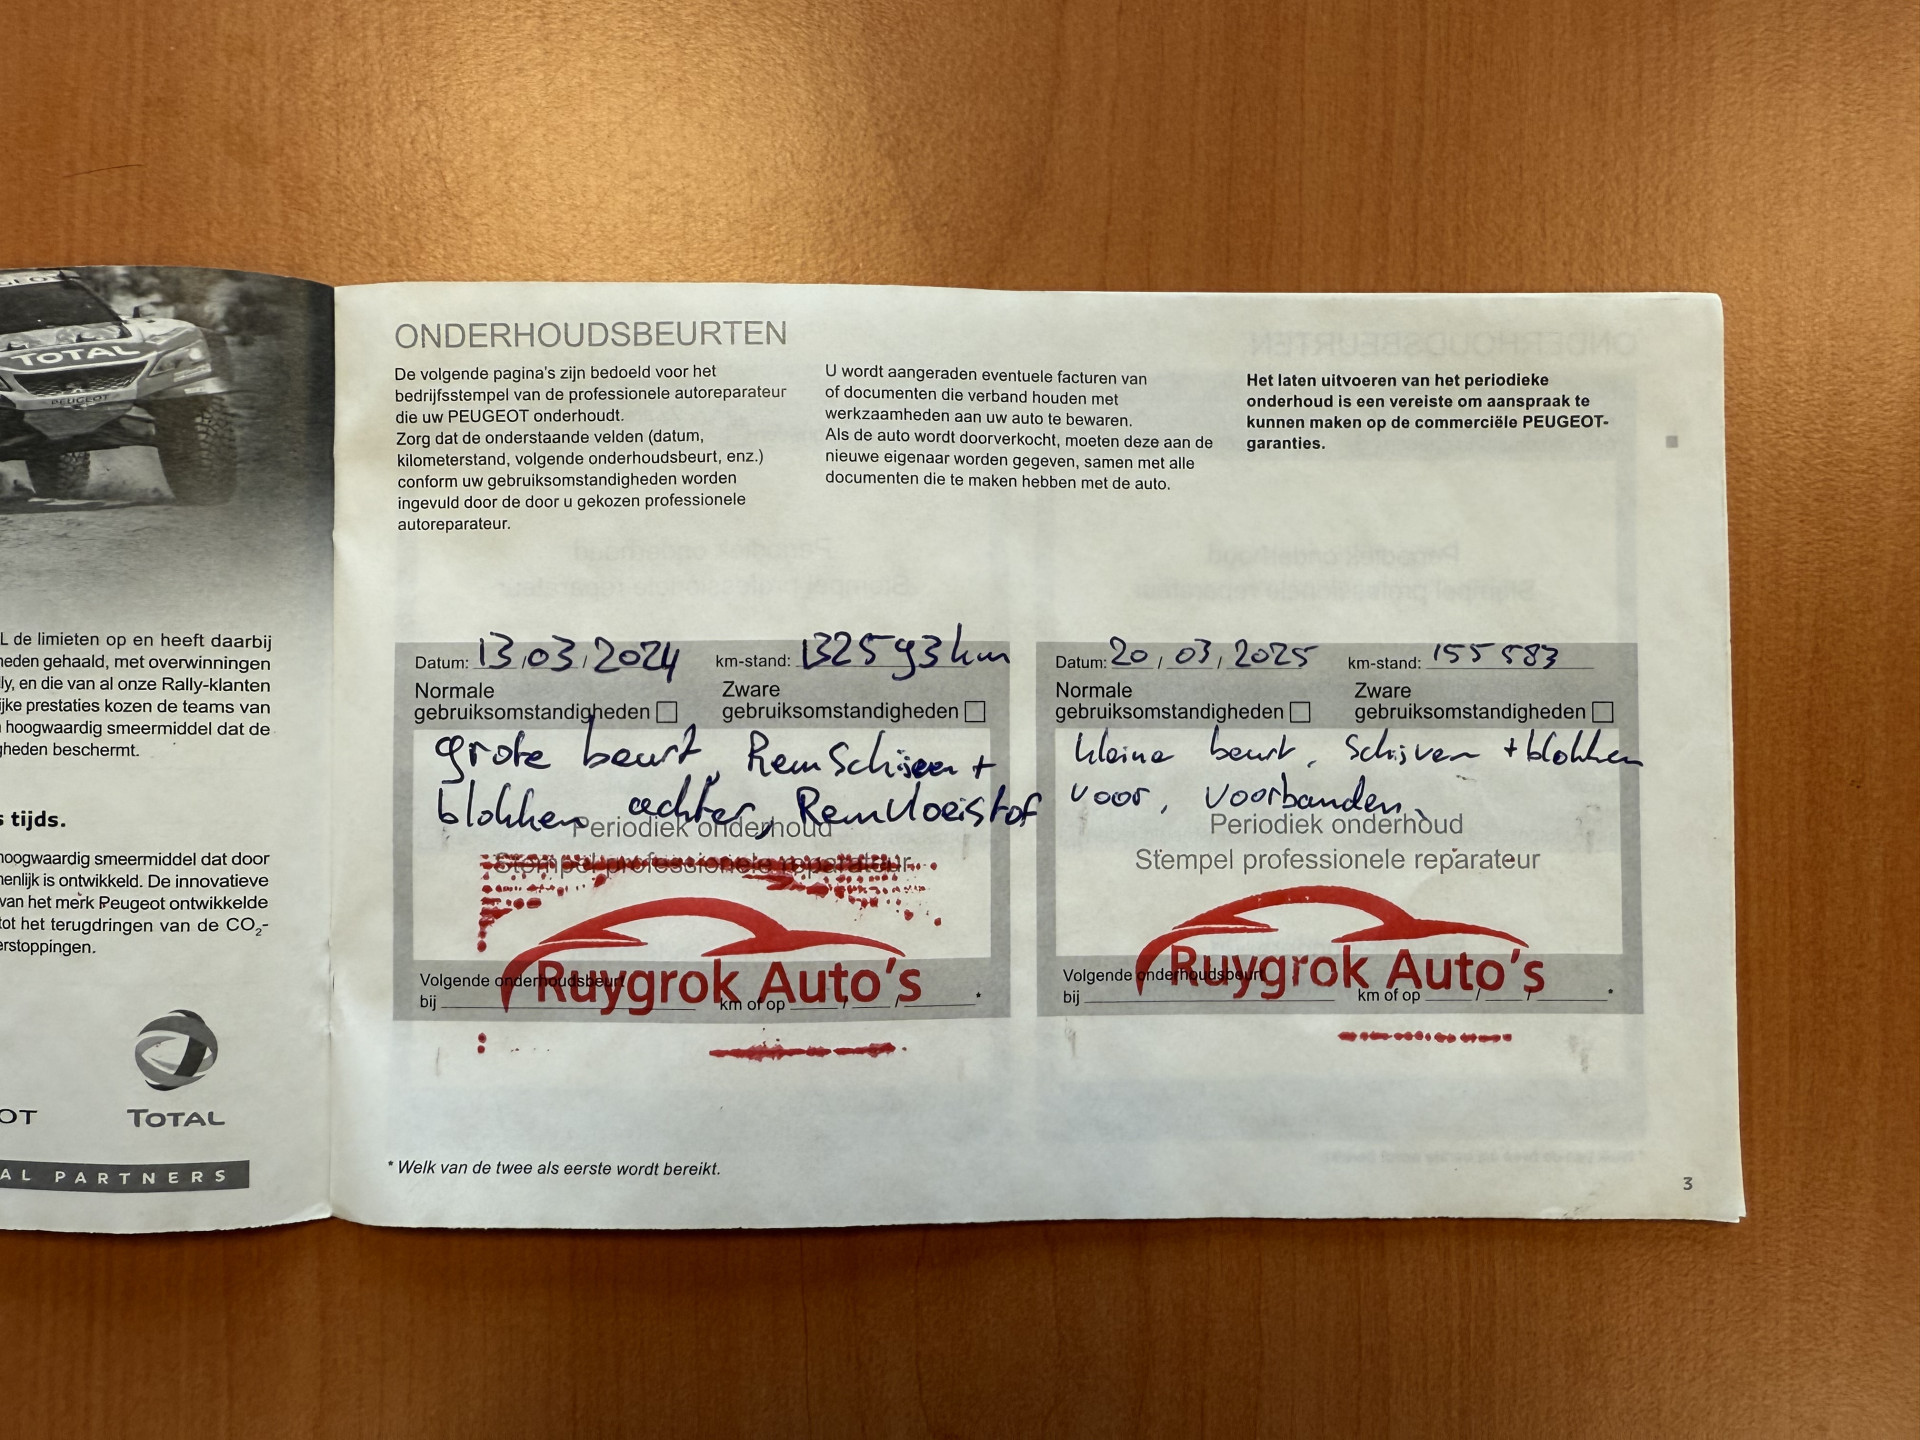 PEUGEOT
TOTAL
PEUGEOT
L de limieten op en heeft daarbij
heden gehaald, met overwinningen
ly, en die van al onze Rally-klanten
ijke prestaties kozen de teams van
hoogwaardig smeermiddel dat de
gheden beschermt.
s tijds.
hoogwaardig smeermiddel dat door
menlijk is ontwikkeld. De innovatieve
van het merk Peugeot ontwikkelde
tot het terugdringen van de CO₂-
erstoppingen.
OT
TOTAL
AL PARTNERS
ONDERHOUDSBEURTEN
De volgende pagina's zijn bedoeld voor het
bedrijfsstempel van de professionele autoreparateur
die uw PEUGEOT onderhoudt.
Zorg dat de onderstaande velden (datum,
kilometerstand, volgende onderhoudsbeurt, enz.)
conform uw gebruiksomstandigheden worden
ingevuld door de door u gekozen professionele
autoreparateur.
U wordt aangeraden eventuele facturen van
of documenten die verband houden met
werkzaamheden aan uw auto te bewaren.
Als de auto wordt doorverkocht, moeten deze aan de
nieuwe eigenaar worden gegeven, samen met alle
documenten die te maken hebben met de auto.
Het laten uitvoeren van het periodieke
onderhoud is een vereiste om aanspraak te
kunnen maken op de commerciële PEUGEOT-
garanties.
Datum: 13/03/2024 km-stand: 132593 km
Normale
gebruiksomstandigheden
Zware
gebruiksomstandigheden
grote beurt, Remschijven +
blokken achter, Remvloeistof
Periodiek onderhoud
Stempel professionele reparateur
Ruygrok Auto's
Volgende onderhoudsbeurt
bij km of op / / *
Datum: 20/03/2025 km-stand: 155583
Normale
gebruiksomstandigheden
Zware
gebruiksomstandigheden
kleine beurt, Schijven + blokken
voor, voorbanden,
Periodiek onderhoud
Stempel professionele reparateur
Ruygrok Auto's
Volgende onderhoudsbeurt
bij km of op / / *
* Welk van de twee als eerste wordt bereikt.
3